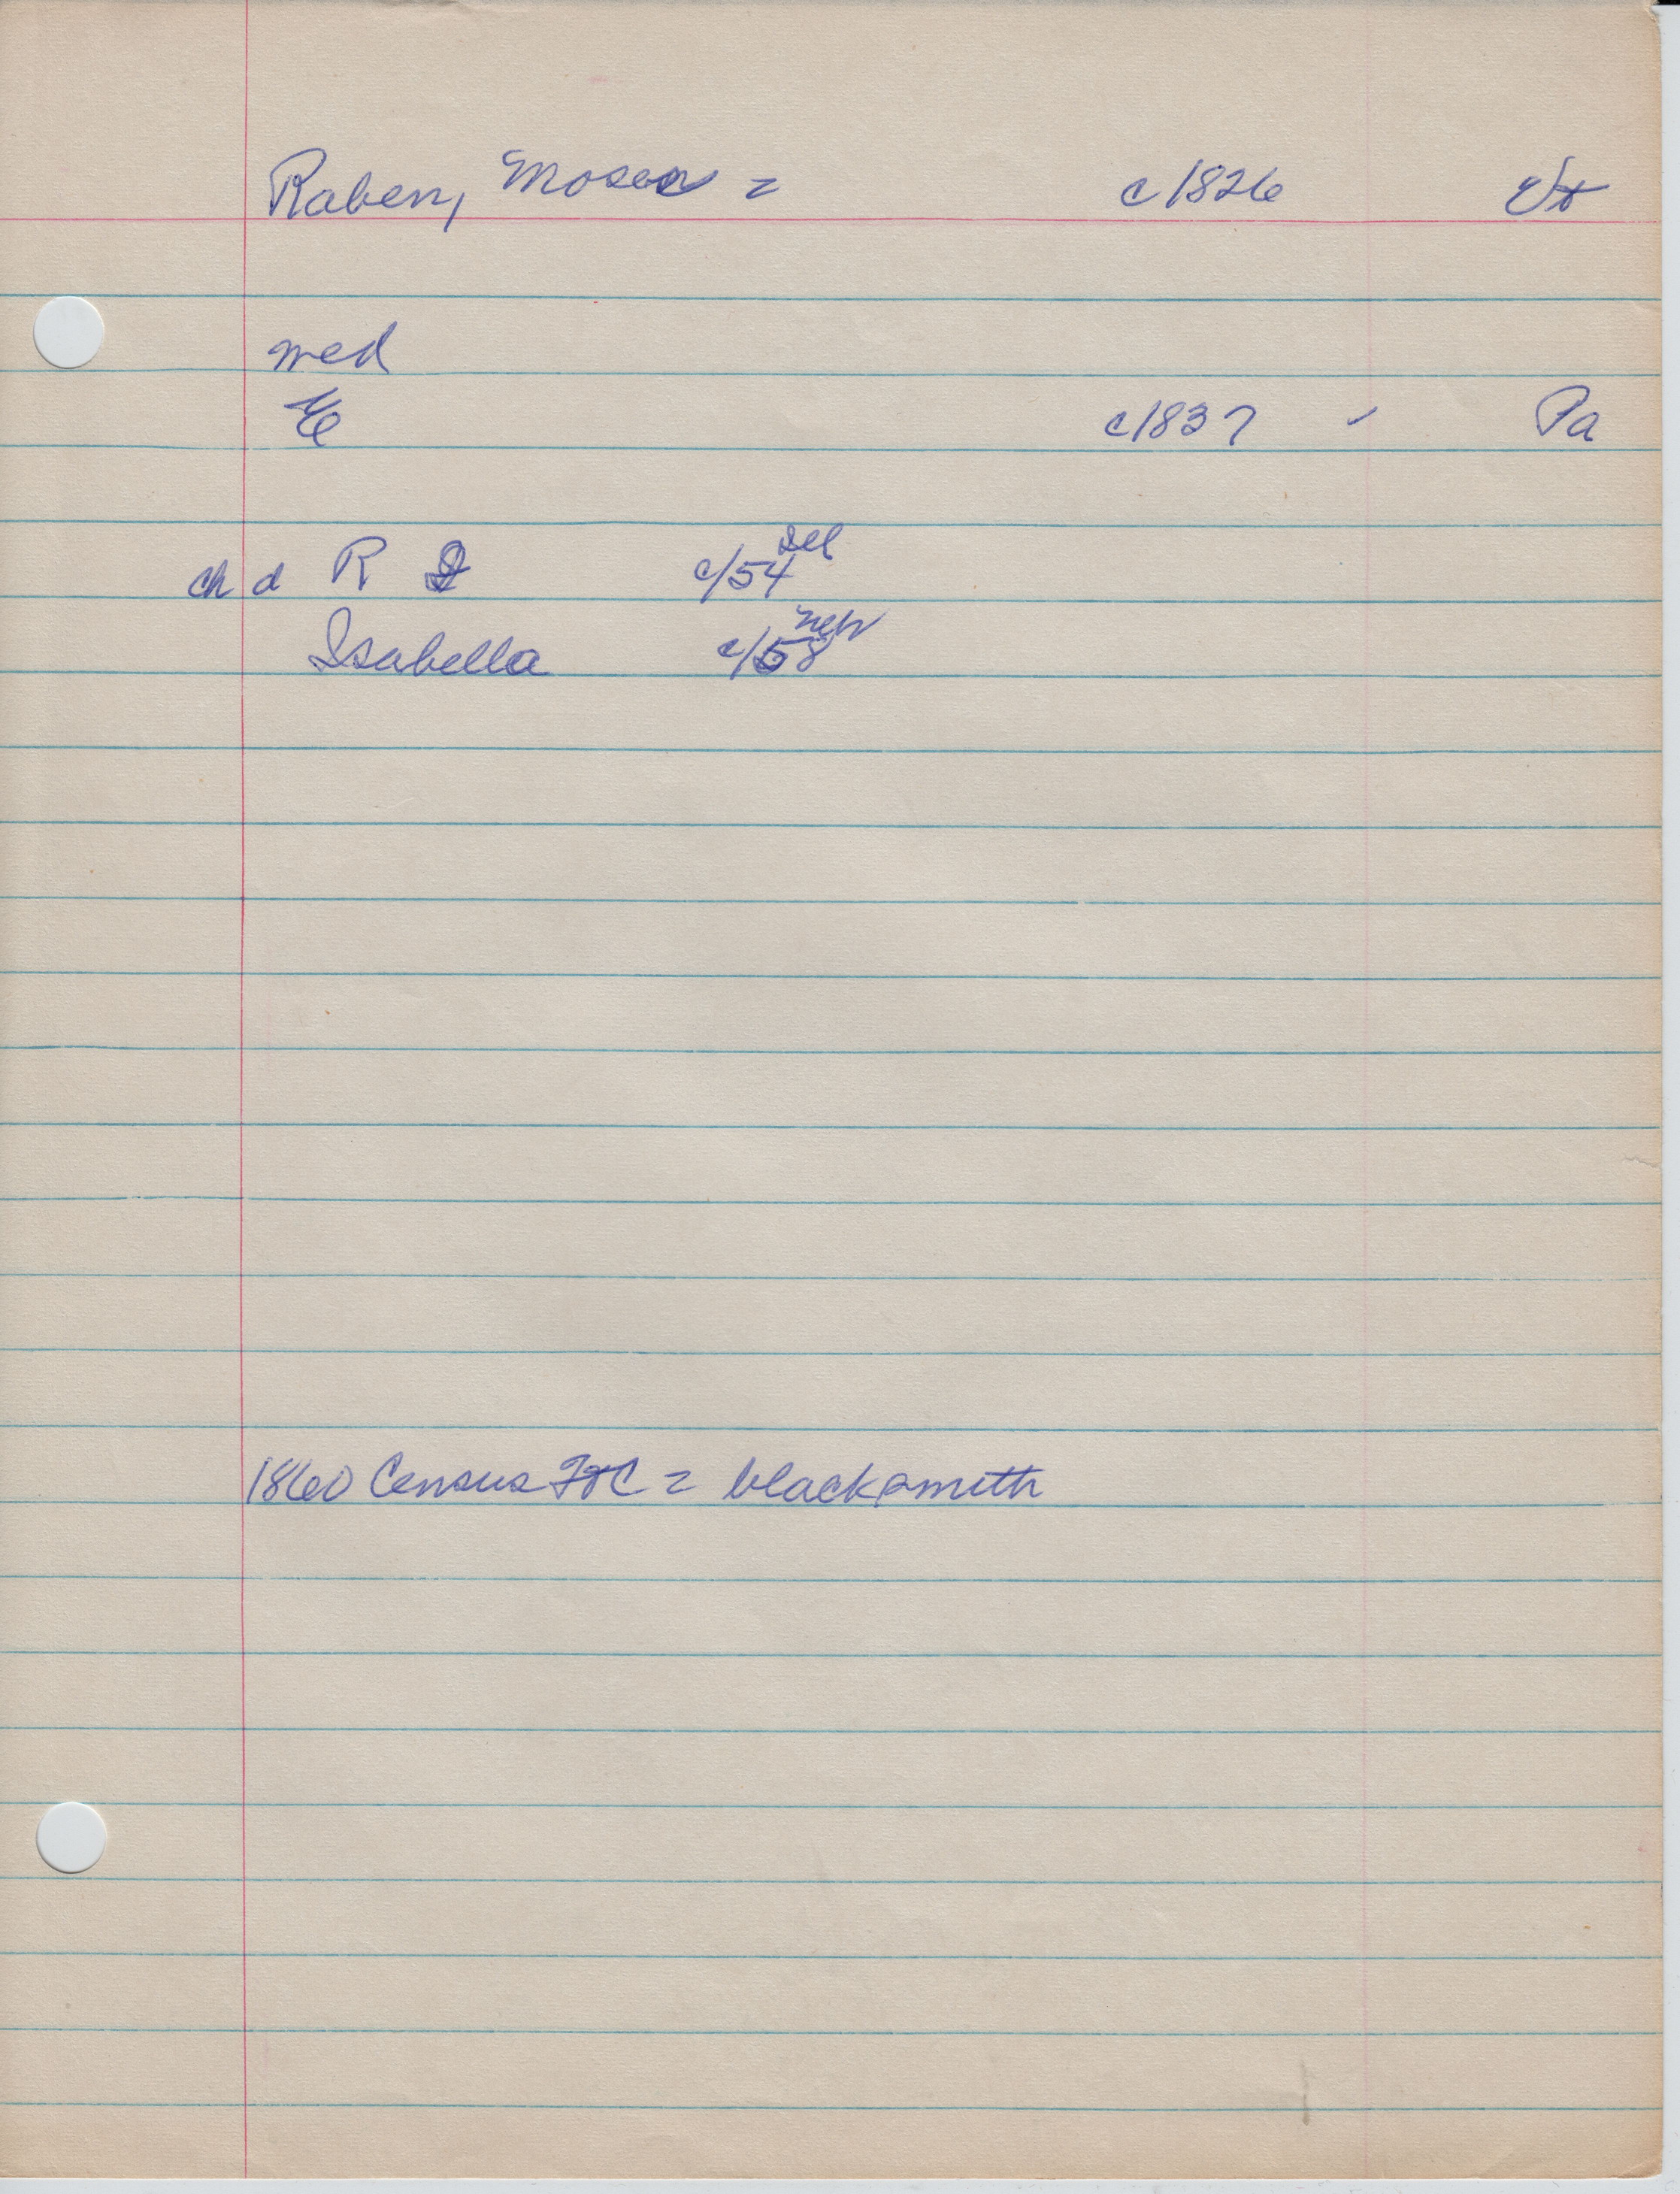 Raben, Moses = c1826 Vt
med
E c1837 - Pa
ch d R I c/54 Ill
Isabella c/58 Neb
1860 Census F&C = blacksmith